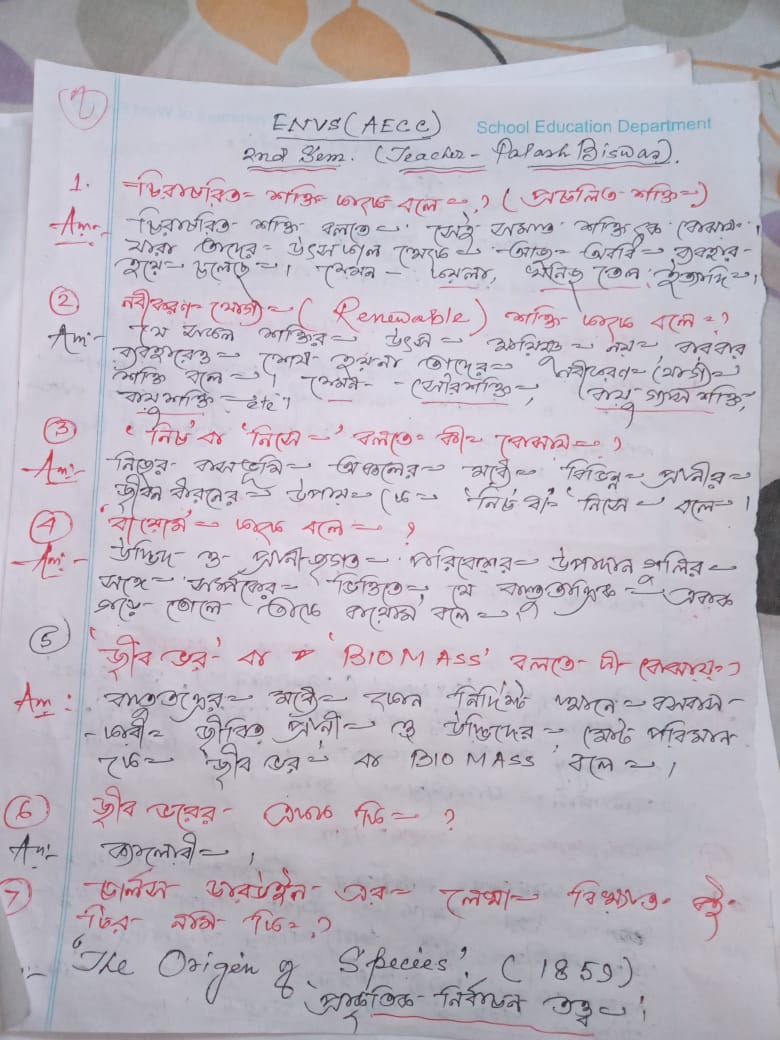 ENVS (AECC)
School Education Department
2nd Sem. (Teacher - Palash Biswas).
1. চিরাচরিত শক্তি কাকে বলে ? (প্রচলিত শক্তি)
Ans:- চিরাচরিত শক্তি বলতে সেই সমস্ত শক্তিকে বোঝায়
যারা তাদের উৎসকাল থেকে আজ অবধি ব্যবহার
হয়ে চলেছে । যেমন - কয়লা, খনিজ তেল ইত্যাদি ।
② নবীকরণ যোগ্য (Renewable) শক্তি কাকে বলে ?
Ans:- যে সকল শক্তির উৎস সীমিত নয় বারবার
ব্যবহারেও শেষ হয়না তাদের নবীকরণ যোগ্য
শক্তি বলে । যেমন - সৌরশক্তি, বায়ু গ্যাস শক্তি,
বায়ুশক্তি etc ।
③ 'নিচ' বা 'নিসে' বলতে কী বোঝায় ?
Ans:- নিজের বাসভূমি অঞ্চলের মধ্যে বিভিন্ন প্রানীর
জীবন ধারনের উপায় কে 'নিচ' বা 'নিসে' বলে ।
④ 'বায়োম' কাকে বলে ?
Ans:- উদ্ভিদ ও প্রানী জগত পরিবেশের উপাদান গুলির
সঙ্গে সম্পর্কের ভিত্তিতে যে বাস্তুতান্ত্রিক একক
গড়ে তোলে তাকে বায়োম বলে ।
⑤ 'জীব ভর' বা 'BIOMASS' বলতে কী বোঝায় ?
Ans: বাস্তুতন্ত্রের মধ্যে কোন নির্দিষ্ট স্থানে বসবাস-
-কারী জীবিত প্রানী ও উদ্ভিদের মোট পরিমান
কে 'জীব ভর' বা BIOMASS বলে ।
⑥ জীব ভরের একক কি ?
Ans:- ক্যালোরী ।
⑦ চার্লস ডারউইন এর লেখা বিখ্যাত বই-
টির নাম কি ?
'The Origen of Species'. (1859)
প্রাকৃতিক নির্বাচন তত্ত্ব ।